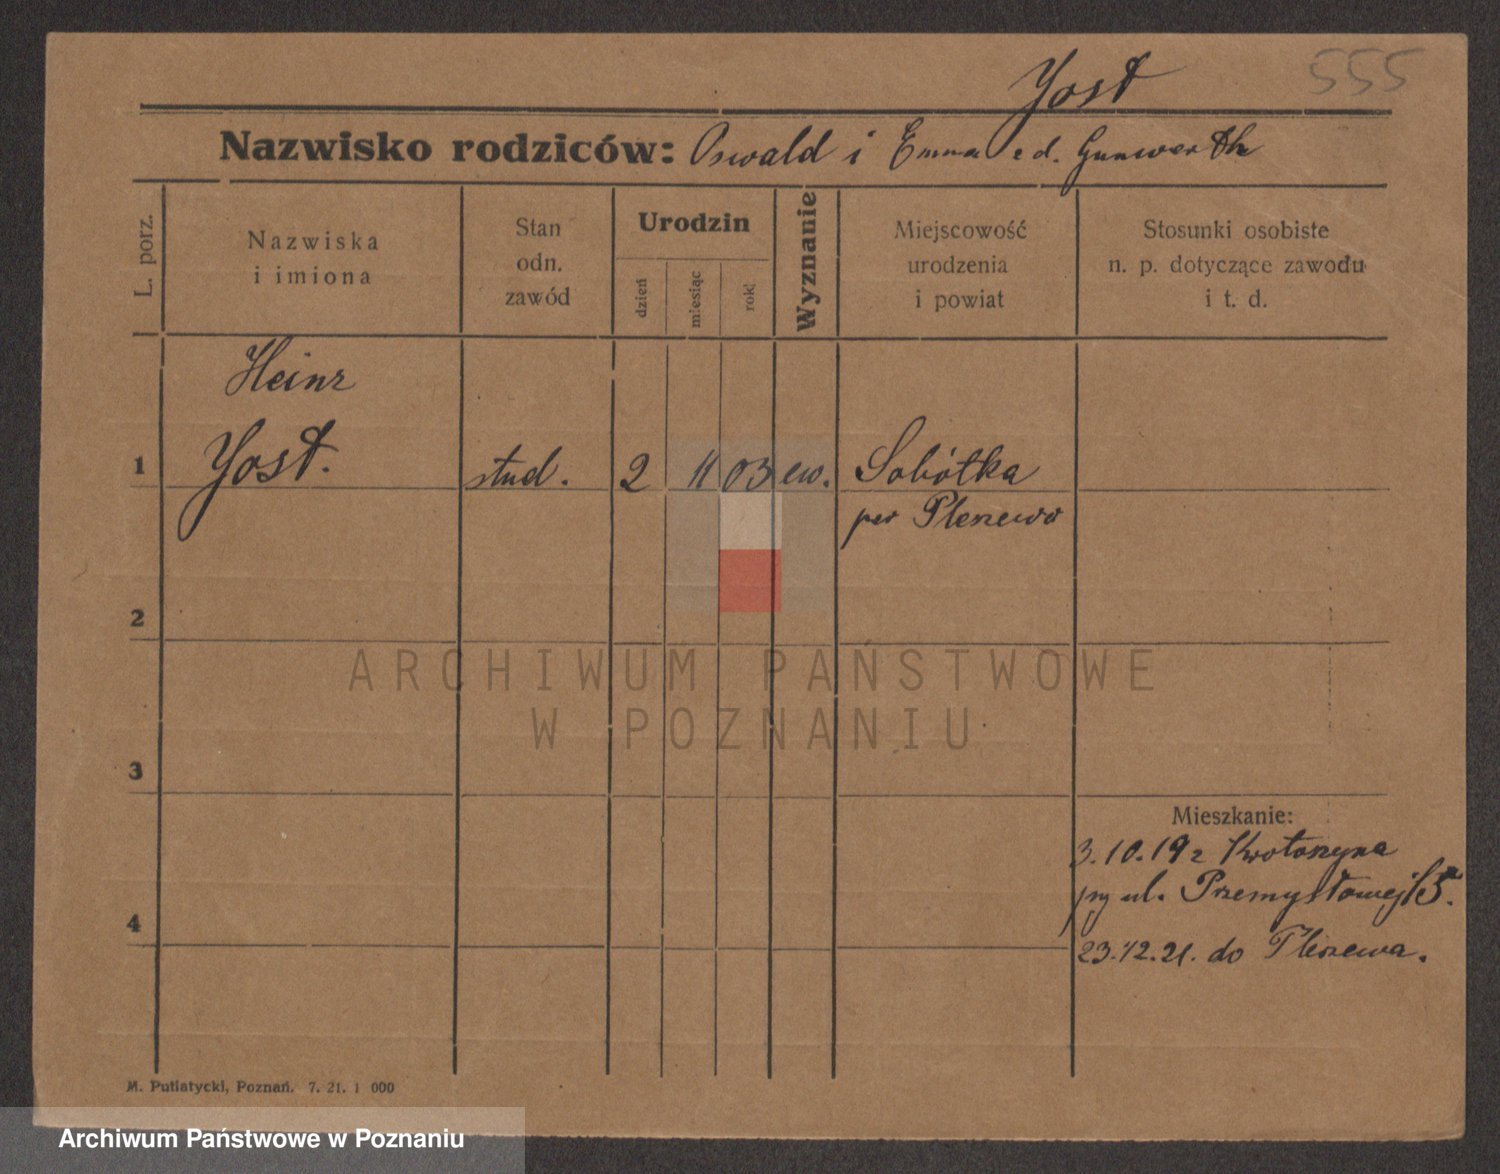 555
Yost
Nazwisko rodziców: Oswald i Emma z d. Gunwerth
L. porz.
Nazwiska
i imiona
Stan
odn.
zawód
Urodzin
dzień
miesiąc
rok
Wyznanie
Miejscowość
urodzenia
i powiat
Stosunki osobiste
n. p. dotyczące zawodu
i t. d.
Heinz
1 Yost. stud. 2 11 03 ew. Sobótka
pow Pleszewo
2
ARCHIWUM PAŃSTWOWE
W POZNANIU
3
Mieszkanie:
3.10.19 z Krotoszyna
przy ul. Przemysłowej 15.
4
23.12.21. do Pleszewa.
M. Putiatycki, Poznań. 7. 21. 1 000
Archiwum Państwowe w Poznaniu